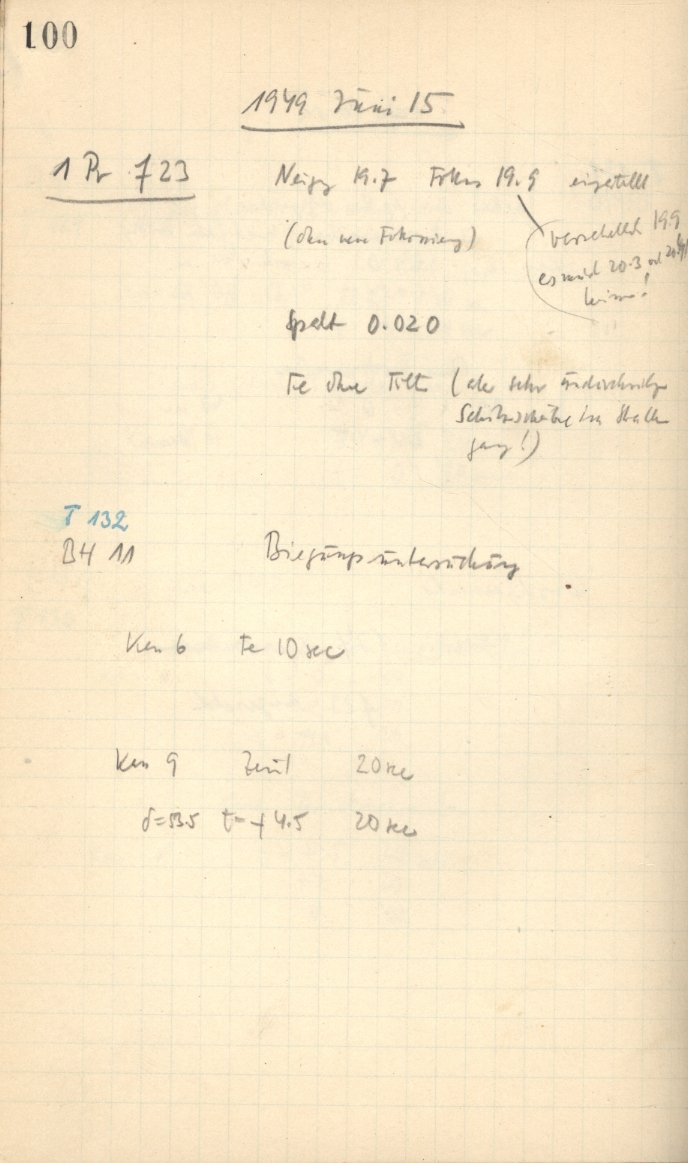 100
1949 Juni 15
1 Pr f 23 Neigg 19.7 Fokus 19.9 eingestellt
(ohne neue Fokussierung)
versehentlich 19.9
es muß 20.3 od
heissen!
Spalt 0.020
Fe ohne Filter (aber sehr
Schutzscheibe im Strahlen
gang!)
T 132
BH 11 Biegungsuntersuchung
Kass 6 Fe 10 sec
Kass 9 Zenit 20 sec
δ=53.5 t=+4.5 20 sec